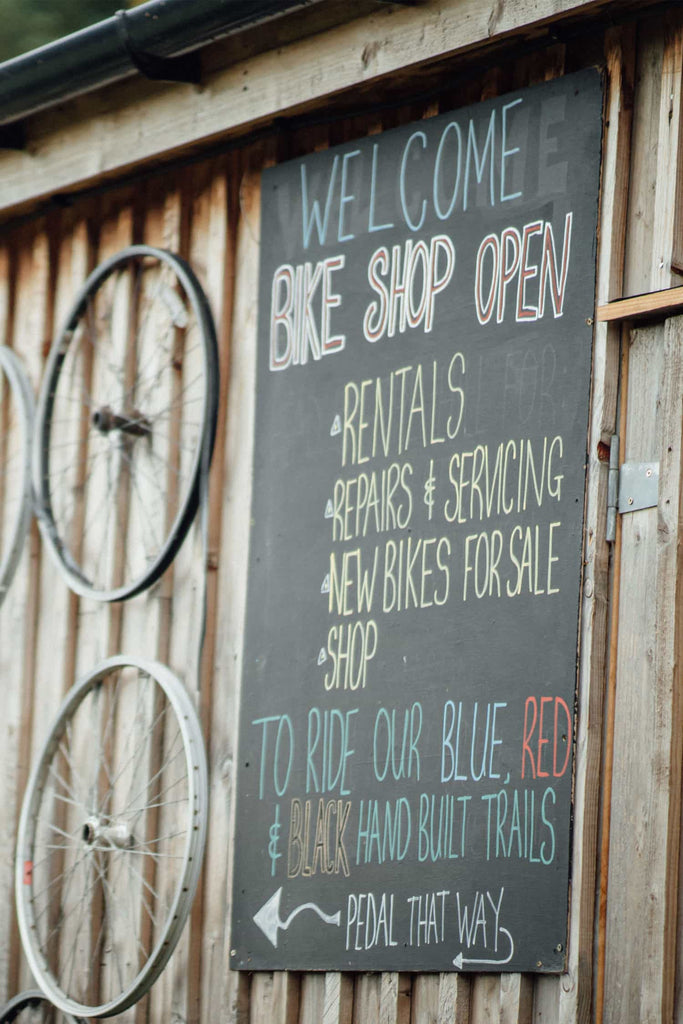 WELCOME
BIKE SHOP OPEN
RENTALS
REPAIRS & SERVICING
NEW BIKES FOR SALE
SHOP
TO RIDE OUR BLUE, RED
& BLACK HAND BUILT TRAILS
PEDAL THAT WAY